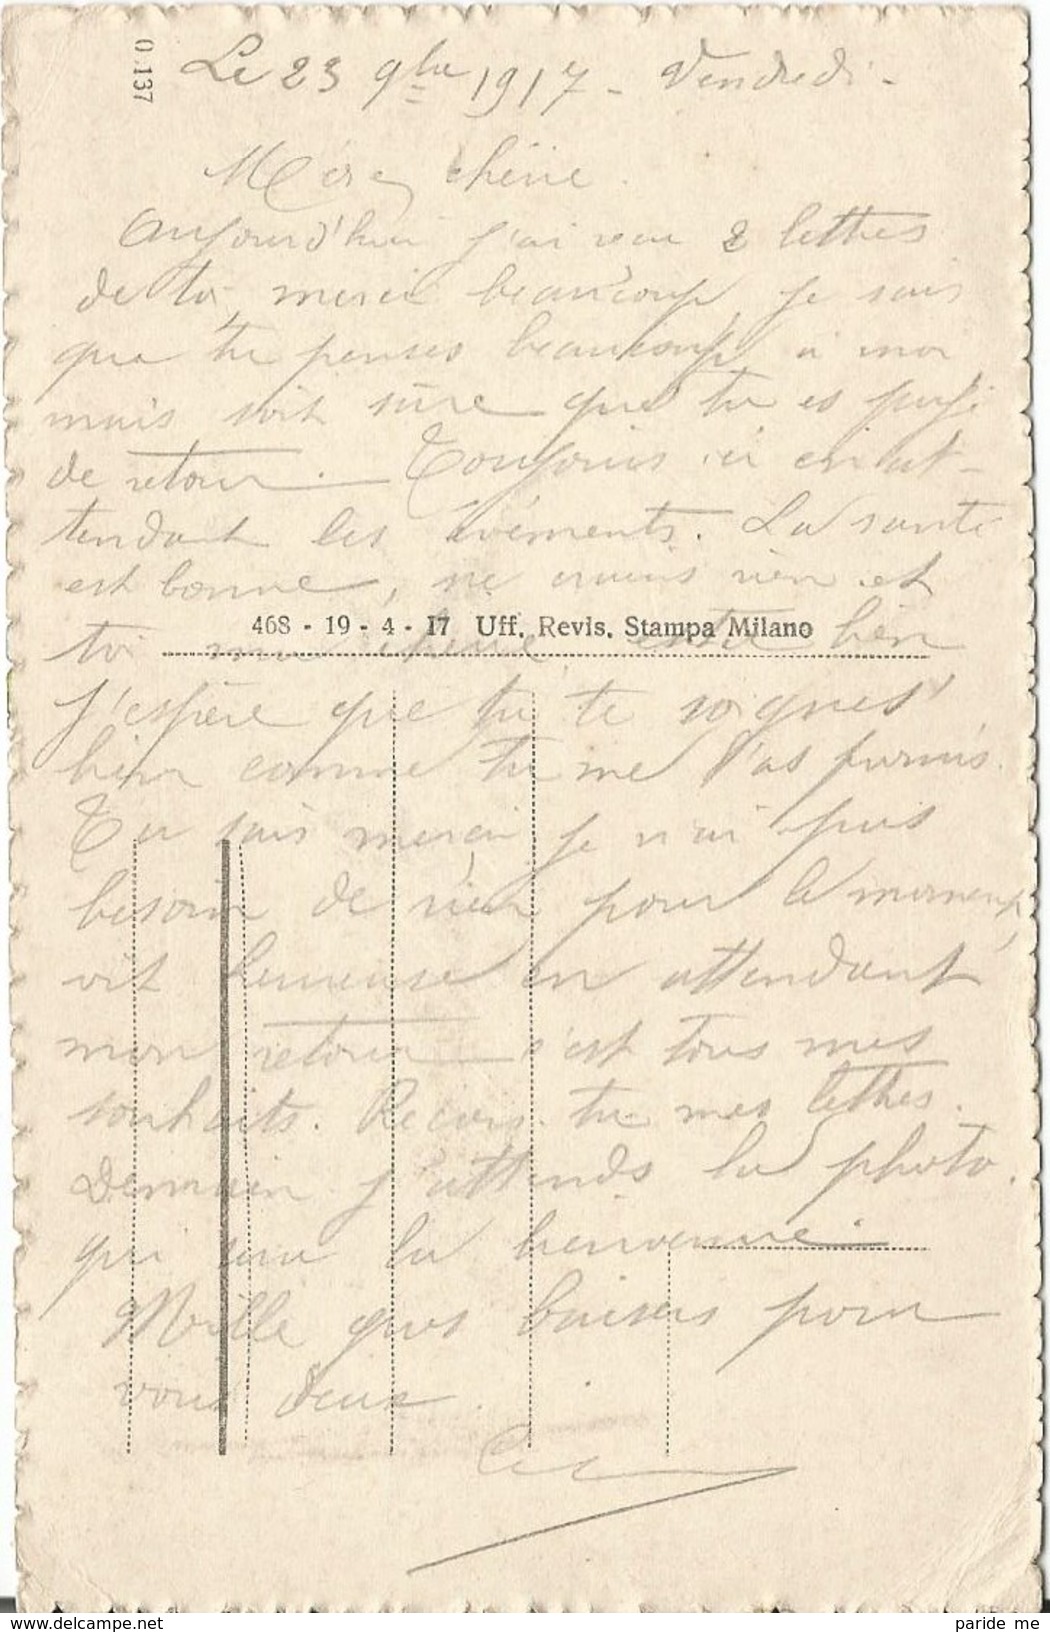 0.137
Le 23 9bre 1917 - Vendredi -
Mère chérie.
Aujourd'hui j'ai reçu 2 lettres
de toi, merci beaucoup je sais
que tu penses beaucoup à moi
mais soit sûre que tu es payé
de retour. Toujours ici en at-
tendant les évéments. La santé
est bonne, ne crains rien et
468 - 19 - 4 - 17 Uff. Revis. Stampa Milano
toi ma chérie bien
J'espère que tu te soignes
bien comme tu me l'as promis.
Tu sais merci je n'ai pas
besoin de rien pour le moment,
vit heureuse en attendant
mon retour c'est tous mes
souhaits. Recois tu mes lettres.
Demain j'attends la photo.
qui sera la bienvenue.
Mille gros baisers pour
vous deux.
www.delcampe.net
paride me